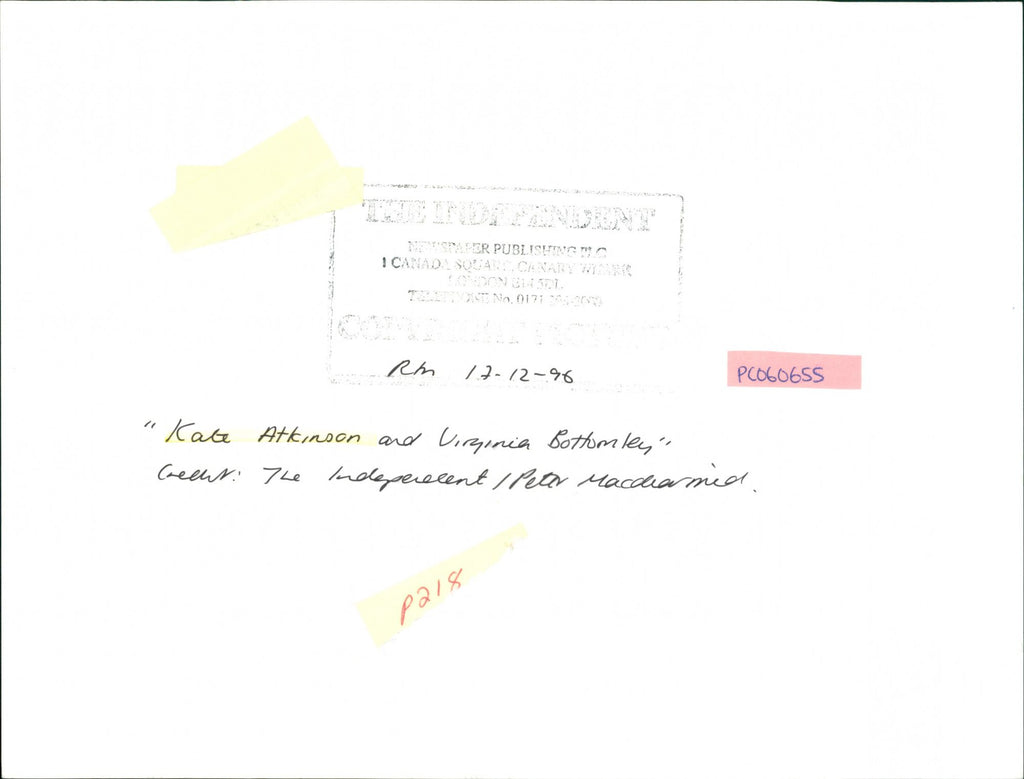 THE INDEPENDENT
NEWSPAPER PUBLISHING PLC
1 CANADA SQUARE, CANARY WHARF
LONDON E14 5DL
TELEPHONE No. 0171
COPYRIGHT
12-96
PC060655
"Kate Atkinson and Virginia Bottomley"
Credit: The Independent / Peter Macdiarmid.
P218